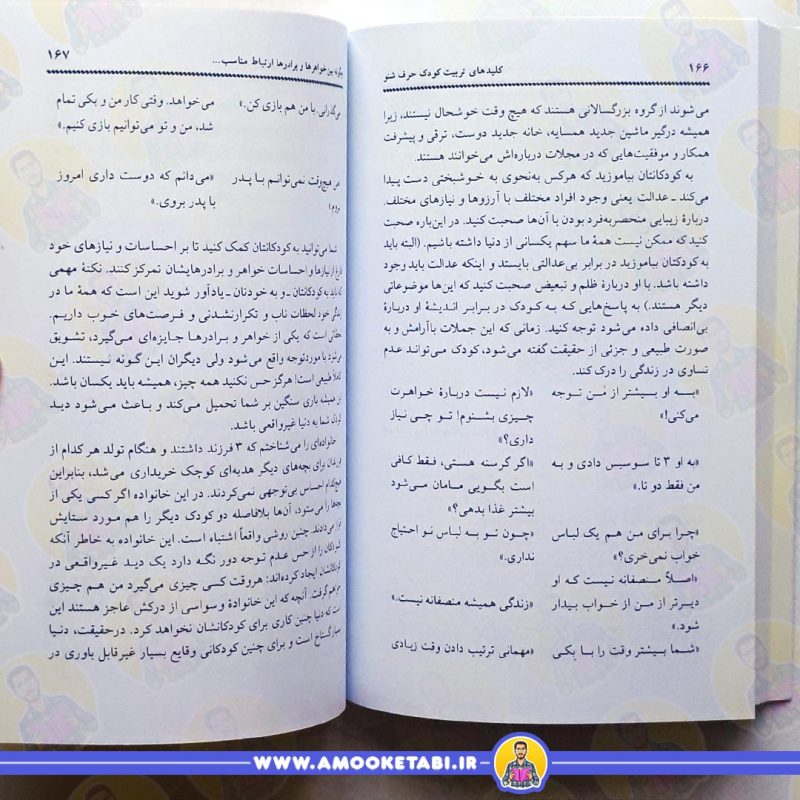 ۱۶۶
کلیدهای تربیت کودک حرف شنو
می‌شوند از گروه بزرگسالانی هستند که هیچ وقت خوشحال نیستند، زیرا
همیشه درگیر ماشین جدید همسایه، خانه جدید دوست، ترقی و پیشرفت
همکار و موفقیت‌هایی که در مجلات درباره‌اش می‌خوانند هستند.
به کودکانتان بیاموزید که هرکس به‌نحوی به خوشبختی دست پیدا
می‌کند ـ عدالت یعنی وجود افراد مختلف با آرزوها و نیازهای مختلف.
دربارهٔ زیبایی منحصربه‌فرد بودن با آن‌ها صحبت کنید. در این‌باره صحبت
کنید که ممکن نیست همهٔ ما سهم یکسانی از دنیا داشته باشیم. (البته باید
به کودکتان بیاموزید در برابر بی‌عدالتی بایستد و اینکه عدالت باید وجود
داشته باشد. با او دربارهٔ ظلم و تبعیض صحبت کنید که این‌ها موضوعاتی
دیگر هستند.) به پاسخ‌هایی که به کودک در برابر اندیشهٔ او دربارهٔ
بی‌انصافی داده می‌شود توجه کنید. زمانی که این جملات باآرامش و به
صورت طبیعی و جزئی از حقیقت گفته می‌شود، کودک می‌تواند عدم
تساوی در زندگی را درک کند.
«بـه او بیشتر از مُـن توجه می‌کنی!»
«لازم نیست دربارهٔ خواهرت چیزی بشنوم! تو چی نیاز داری؟»
«به او ۳ تا سوسیس دادی و به من فقط دو تا.»
«اگر گرسنه هستی، فقط کافی است بگویی مامان می‌شود بیشتر غذا بدهی؟»
«چـرا برای من هم یک لباس خواب نمی‌خری؟»
«چون تو به لباس نو احتیاج نداری.»
«اصلاً منصفانه نیست که او دیرتر از من از خواب بیدار شود.»
«زندگی همیشه منصفانه نیست.»
«شما بیشتر وقت را با یکی
«مهمانی ترتیب دادن وقت زیادی
بین خواهرها و برادرها ارتباط مناسب...
۱۶۷
می‌گذرانی. با من هم بازی کن.»
می‌خواهد. وقتی کار من و یکی تمام شد، من و تو می‌توانیم بازی کنیم.»
هیچ‌وقت نمی‌توانم با پدر
«می‌دانم که دوست داری امروز با پدر بروی.»
می‌توانید به کودکانتان کمک کنید تا بر احساسات و نیازهای خود
از نیازها و احساسات خواهر و برادرهایشان تمرکز کنند. نکتهٔ مهمی
باید به کودکانتان ـ و به خودتان ـ یادآور شوید این است که همهٔ ما در
خود لحظات ناب و تکرارنشدنی و فرصت‌های خوب داریم.
است که یکی از خواهر و برادرها جایزه‌ای می‌گیرد، تشویق
می‌شود یا موردتوجه واقع می‌شود ولی دیگران این گونه نیستند. این
کاملاً طبیعی است! هرگز حس نکنید همه چیز، همیشه باید یکسان باشد.
همیشه باری سنگین بر شما تحمیل می‌کند و باعث می‌شود دید
کودک شما به دنیا غیرواقعی باشد.
خانواده‌ای را می‌شناختم که ۳ فرزند داشتند و هنگام تولد هر کدام از
فرزندان برای بچه‌های دیگر هدیه‌ای کوچک خریداری می‌شد، بنابراین
هیچ‌کدام احساس بی‌توجهی نمی‌کردند. در این خانواده اگر کسی یکی از
بچه‌ها را می‌ستود، آن‌ها بلافاصله دو کودک دیگر را هم مورد ستایش
قرار می‌دادند. چنین روشی واقعاً اشتباه است. این خانواده به خاطر آنکه
کودکان را از حس عدم توجه دور نگه دارد یک دید غیرواقعی در
کودکانشان ایجاد کرده‌اند: هروقت کسی چیزی می‌گیرد من هم چیزی
خواهم گرفت. آنچه که این خانوادهٔ وسواسی از درکش عاجز هستند این
است که دنیا چنین کاری برای کودکانشان نخواهد کرد. درحقیقت، دنیا
بسیار گستاخ است و برای چنین کودکانی وقایع بسیار غیرقابل باوری در
WWW.AMOOKETABI.IR